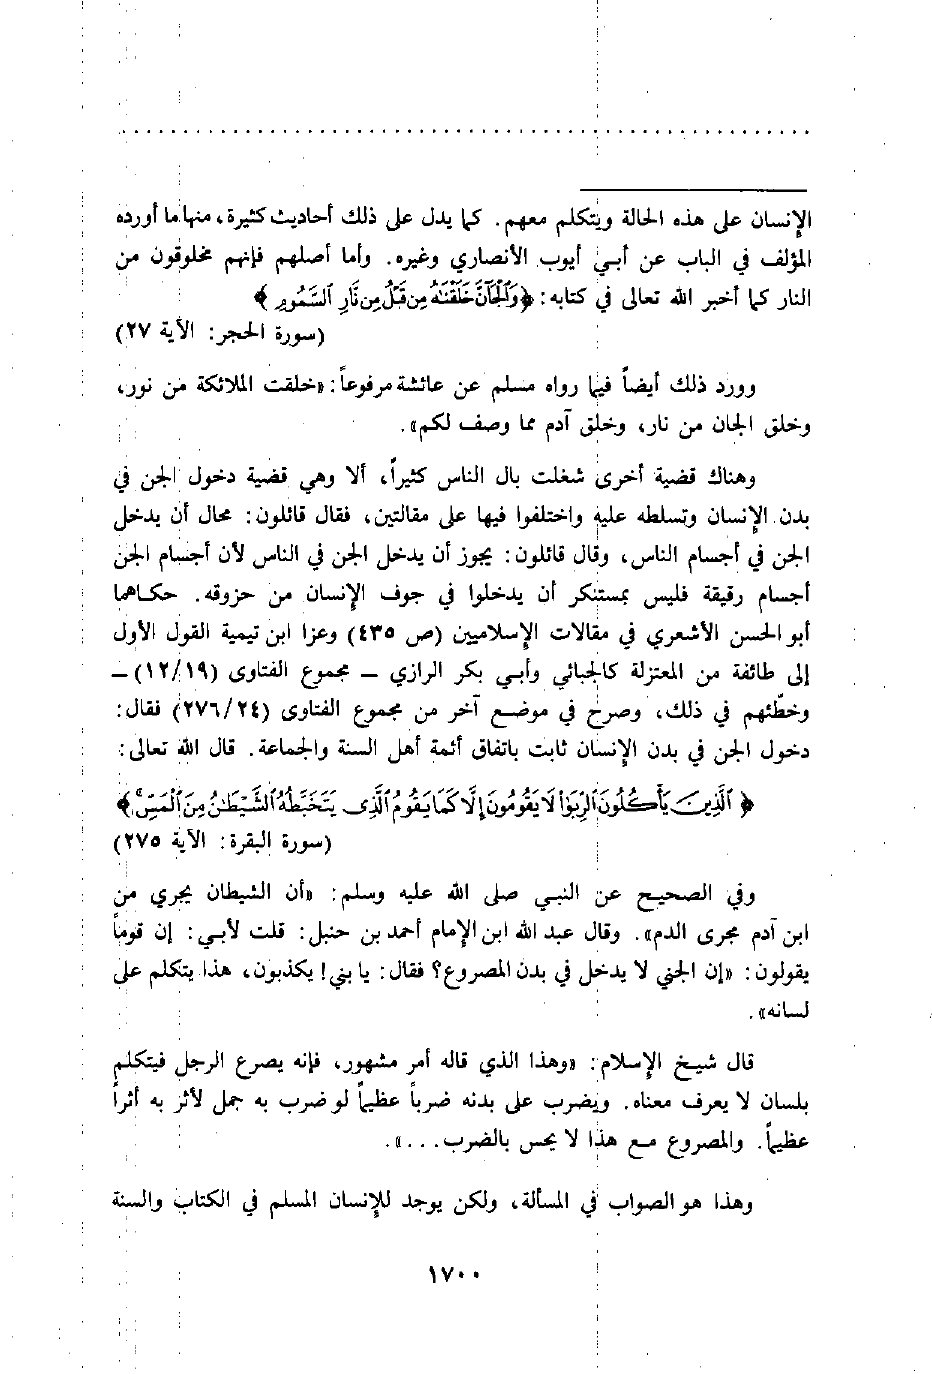 الإنسان على هذه الحالة ويتكلم معهم. كما يدل على ذلك أحاديث كثيرة، منها ما أورده
المؤلف في الباب عن أبي أيوب الأنصاري وغيره. وأما أصلهم فإنهم مخلوقون من
النار كما أخبر الله تعالى في كتابه: ﴿وَٱلْجَآنَّ خَلَقْنَٰهُ مِن قَبْلُ مِن نَّارِ ٱلسَّمُومِ﴾
(سورة الحجر: الآية ٢٧)
وورد ذلك أيضاً فيما رواه مسلم عن عائشة مرفوعاً: «خلقت الملائكة من نور،
وخلق الجان من نار، وخلق آدم مما وصف لكم».
وهناك قضية أخرى شغلت بال الناس كثيراً، ألا وهي قضية دخول الجن في
بدن الإنسان وتسلطه عليه واختلفوا فيها على مقالتين، فقال قائلون: محال أن يدخل
الجن في أجسام الناس، وقال قائلون: يجوز أن يدخل الجن في الناس لأن أجسام الجن
أجسام رقيقة فليس بمستنكر أن يدخلوا في جوف الإنسان من حزوقه. حكاهما
أبو الحسن الأشعري في مقالات الإسلاميين (ص ٤٣٥) وعزا ابن تيمية القول الأول
إلى طائفة من المعتزلة كالجبائي وأبي بكر الرازي – مجموع الفتاوى (١٢/١٩) –
وخطّئهم في ذلك، وصرح في موضع آخر من مجموع الفتاوى (٢٧٦/٢٤) فقال:
دخول الجن في بدن الإنسان ثابت باتفاق أئمة أهل السنة والجماعة. قال الله تعالى:
﴿ٱلَّذِينَ يَأْكُلُونَ ٱلرِّبَوٰا۟ لَا يَقُومُونَ إِلَّا كَمَا يَقُومُ ٱلَّذِى يَتَخَبَّطُهُ ٱلشَّيْطَٰنُ مِنَ ٱلْمَسِّ﴾
(سورة البقرة: الآية ٢٧٥)
وفي الصحيح عن النبي صلى الله عليه وسلم: «أن الشيطان يجري من
ابن آدم مجرى الدم». وقال عبد الله ابن الإمام أحمد بن حنبل: قلت لأبي: إن قوماً
يقولون: «إن الجني لا يدخل في بدن المصروع؟ فقال: يا بني! يكذبون، هذا يتكلم على
لسانه».
قال شيخ الإسلام: «وهذا الذي قاله أمر مشهور، فإنه يصرع الرجل فيتكلم
بلسان لا يعرف معناه. ويضرب على بدنه ضرباً عظيماً لو ضرب به جمل لأثر به أثراً
عظيماً. والمصروع مع هذا لا يحس بالضرب...».
وهذا هو الصواب في المسألة، ولكن يوجد للإنسان المسلم في الكتاب والسنة
١٧٠٠